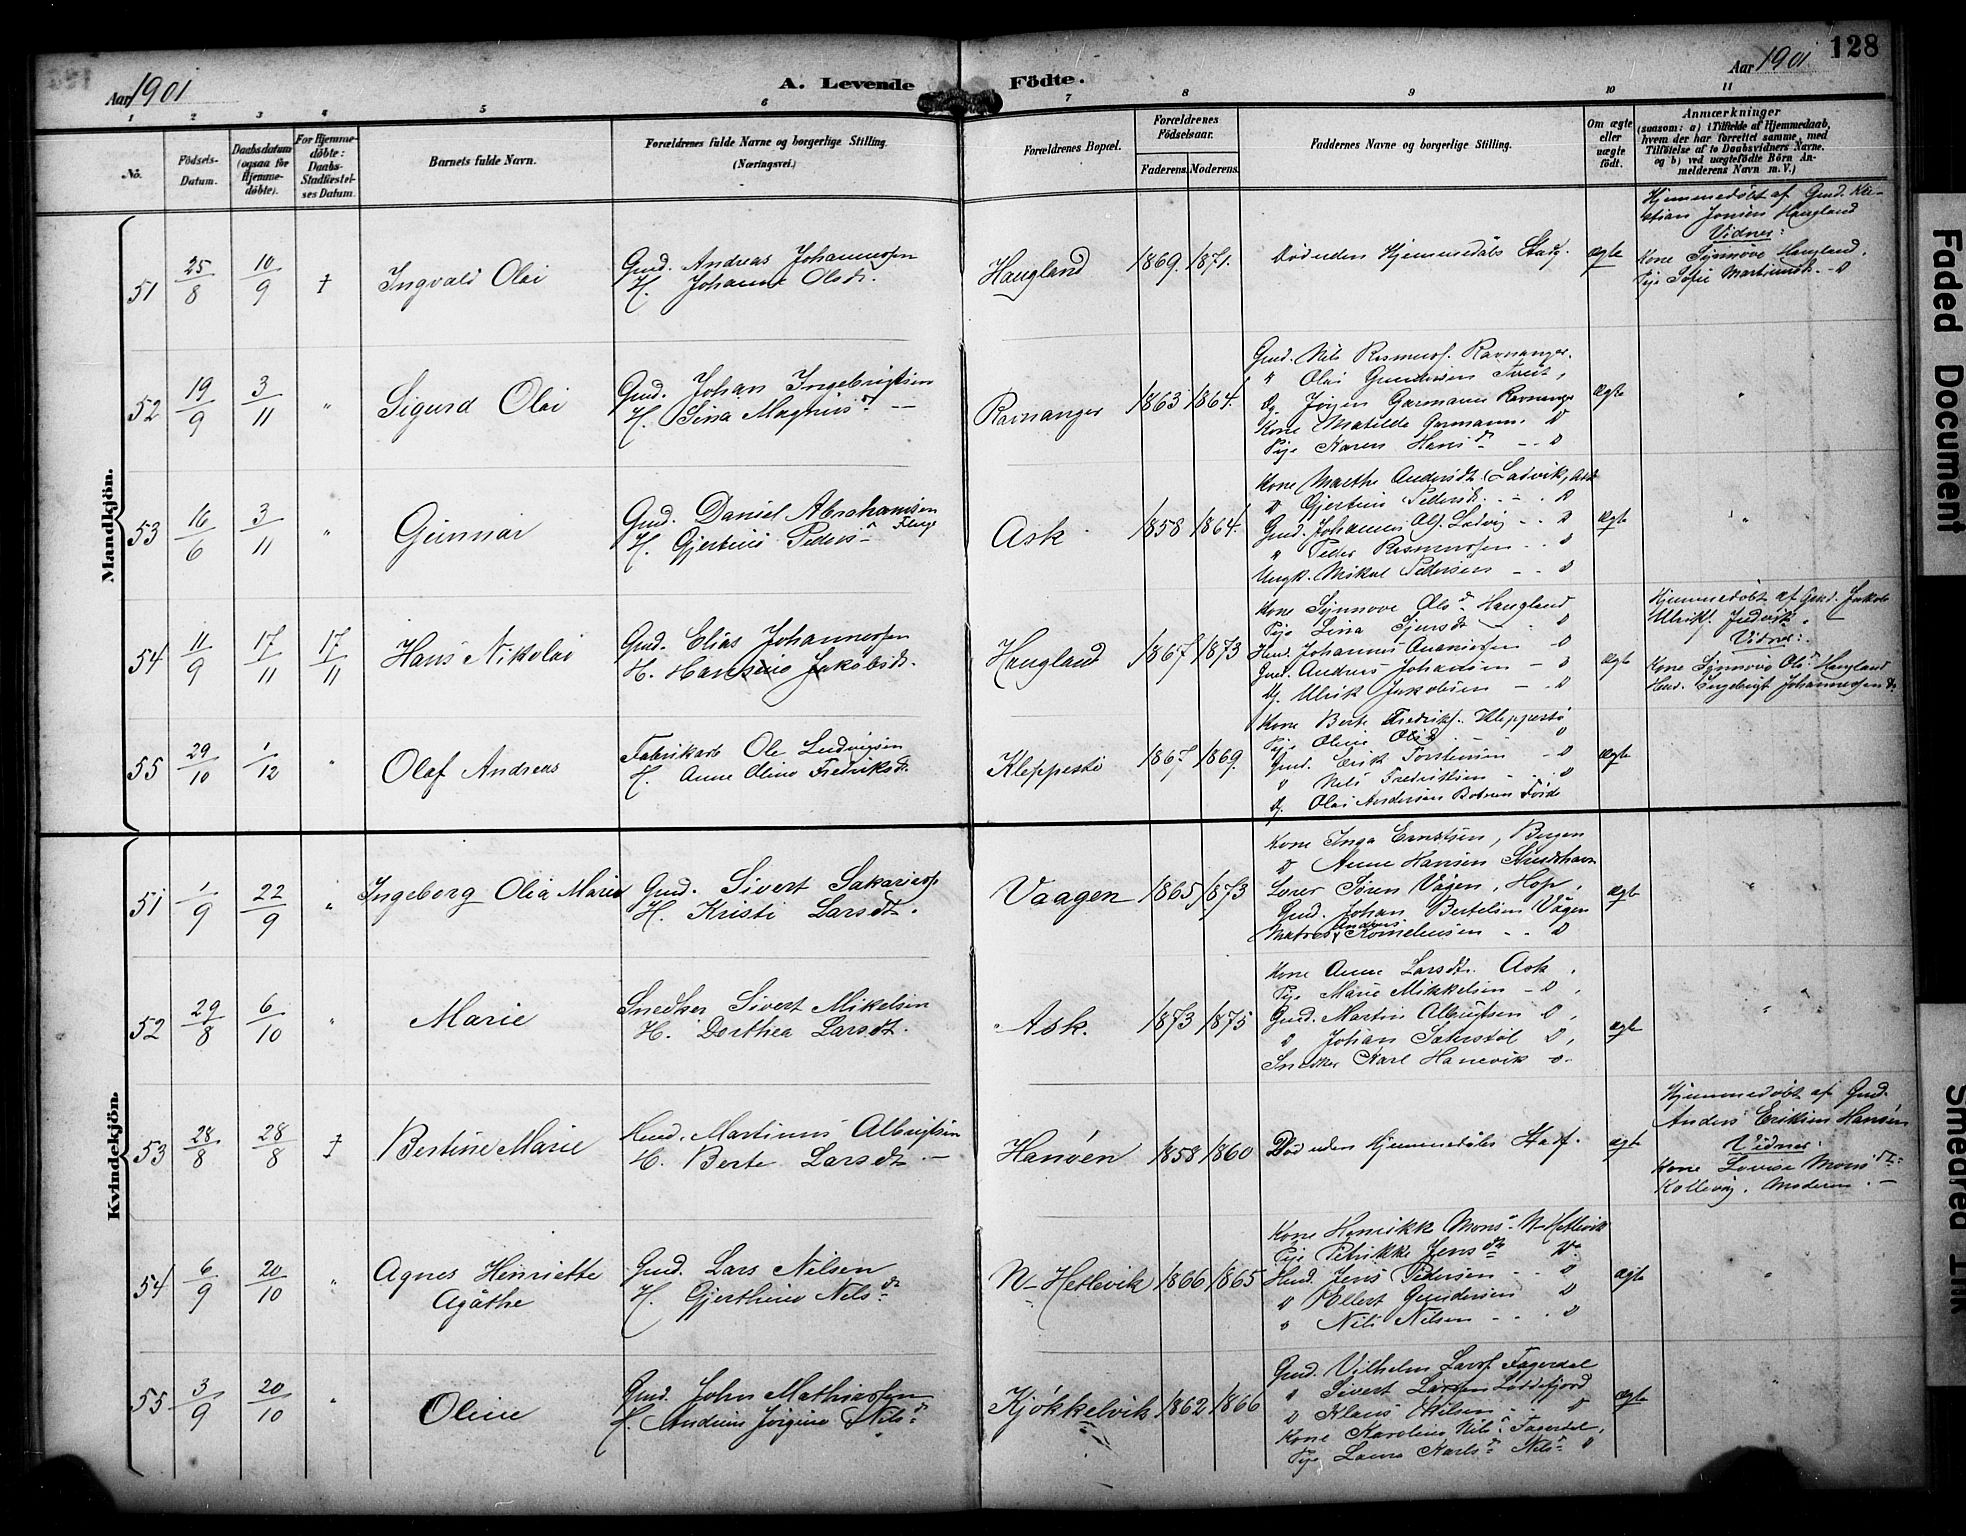 128
Aar 1901
A. Levende Födte.
Aar 1901
1 2 3 4 5 6 7 8 9 10 11
No.
Födsels-Datum.
Daabsdatum (ogsaa for Hjemme-döbte).
For Hjemme-döbte: Daabs-Stadfæstelses Datum.
Barnets fulde Navn.
Forældrenes fulde Navne og borgerlige Stilling. (Næringsvei.)
Forældrenes Bopæl.
Forældrenes Födselsaar.
Faderens. Moderens.
Faddernes Navne og borgerlige Stilling.
Om ægte eller uægte födt.
Anmærkninger
(saasom: a) i Tilfælde af Hjemmedaab, hvem der har forrettet samme, med Tilföielse af to Daabsvidners Navne. og b) ved uægtefödte Börn Anmelderens Navn m. V.)
Mandkjön.
51 25/8 10/9 † Ingvald Olai
Gmd. Andreas Johannessen
H. Johanne Olsdt.
Haugland 1869. 1871.
Död uden Hjemmedåbs Stadf. ægte
Hjemmedöbt af Gmd. Kri-
stian Jonsen Haugland
Vidner:
Kone Synnöve Haugland.
Pige Sofie Martinusdt. - D
52 19/9 3/11 " Sigurd Olai
Gmd. Johan Ingebrigtsen
H. Sina Magnusdt. --
Ravnanger 1863 1864.
Gmd. Nils Rasmuss. Ravnanger.
" Olai Gundersen Tveit,
Dg. Jörgen Garmann Ravnanger
Kone Matilde Garmann. D
Pige Karen Hansdt. - - D
ægte "
53 16/6 3/11 " Gunnar
Gmd. Daniel Abrahamsen
H. Gjertine Pedersdt.
Ask 1858 1864.
Kone Marthe Andersdt. Ladvik, Ask
D Gjertine Pedersdt. - - D
Gmd. Johannes Ols. Ladvig - - D
" Peder Rasmussen - - D
Ungk. Mikal Pedersen - - D
ægte "
54 11/9 17/11 17/11 Hans Nikolai
Gmd. Elias Johannessen
H. Hansine Jakobsdt.
Haugland 1867 1873
Kone Synnove Olsd. Haugland
Pige Lina Sjursdt - D
Gmd. Johannes Ananiassen - D
Gmd. Andreas Johansen - D
Dg. Ulrik Jakobsen - - D
ægte
Hjemmedöbt af Gmd. Jakob
Ulrik.
Vidner:
Kone Synnöve Olsd. Haugland
Gmd. Ingebrigt Johannessen Do
55 29/10 1/12 " Olaf Andreas
Fabrikarb. Ole Ludvigsen
H. Anne Oline Fredriksdt.
Kleppestö 1867. 1869.
Kone Berte Fredriks. Kleppestö
Pige Oline Olsd. - - D
Gmd. Erik Torstensen - D
D Nils Fredriksen - - D
Dg. Olai Andersen Förde
ægte
Kvindekjön.
51 1/9 22/9 " Ingeborg Olia Marie
Gmd. Sivert Sakariass.
H. Kristi Larsdt.
Vaagen 1865 1873
Kone Inga Ernstsen, Bergen
D Anne Hansen Strudshavn
Lærer Sören Vågen, Hop,
Gmd. Johan Bertelsen Vågen
Matros Andreas Kornelinsen - - D
ægte "
52 29/8 6/10 " Marie
Snedker Sivert Mikelsen
H. Dorthea Larsdt.
Ask. 1873 1875
Kone Anne Larsdt. Ask.
Pige Marie Mikkelsen - D.
Gmd. Martin Albrigtsen D.
D Johan Sæterstöl D.
Snedker Karl Hanevik D.
ægte "
53 28/8 28/8 † Bertine Marie
Gmd. Martinus Albrigtsen
H. Berte Larsdt. -
Hanöen 1858 1860
Död uden Hjemmedåbs Stadf. ægte
Hjemmedöbt af Gmd.
Anders Eriksen Hanöen
Vidner:
Kone Lovise Monsdt.
Kollevåg. Moderen. -
54 6/9 20/10 " Agnes Henriette
Agåthe
Gmd. Lars Nilsen
H. Gjerthine Nilsdt.
N- Hetlevik 1866 1865
Kone Henrikke Mons. N-Hetlevik
Pige Petrikke Jensdt. D.
Gmd. Jens Pedersen - - D
D Ellert Gundersen D
D Nils Nilsen - - . D
ægte "
55 3/9 20/10 " Oline
Gmd. John Mathiassen
H. Andrine Jörgine Nilsd.
Kjökkelvik 1862 1866
Gmd. Vilhelm Larss. Fagerdal
D Sivert Larsen Loddefjord
D Klaus Nilsen - - D
Kone Karoline Nils. Fagerdal.
Pige Laura Karlsd. Nils. D
ægte
Faded Document
Smeared Ink